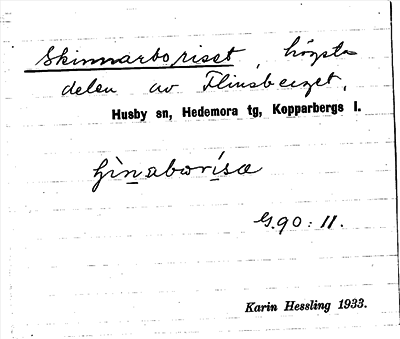 Skinnarboriset, högsta
delen av Flinsberget.
Husby sn, Hedemora tg, Kopparbergs l.
G.90: 11.
Karin Hessling 1933.